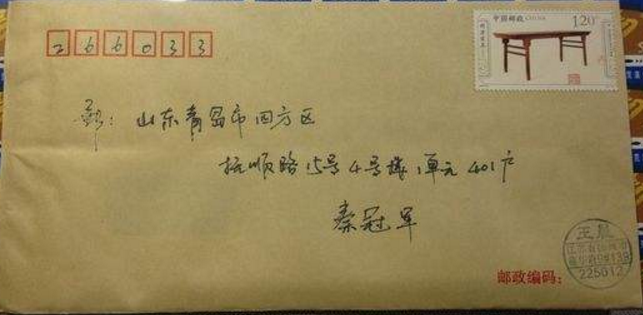 266033
中国邮政 CHINA 1.20元
寄：山东青岛市四方区
抚顺路15号4号楼1单元401户
秦冠军
王晨
225012
邮政编码：